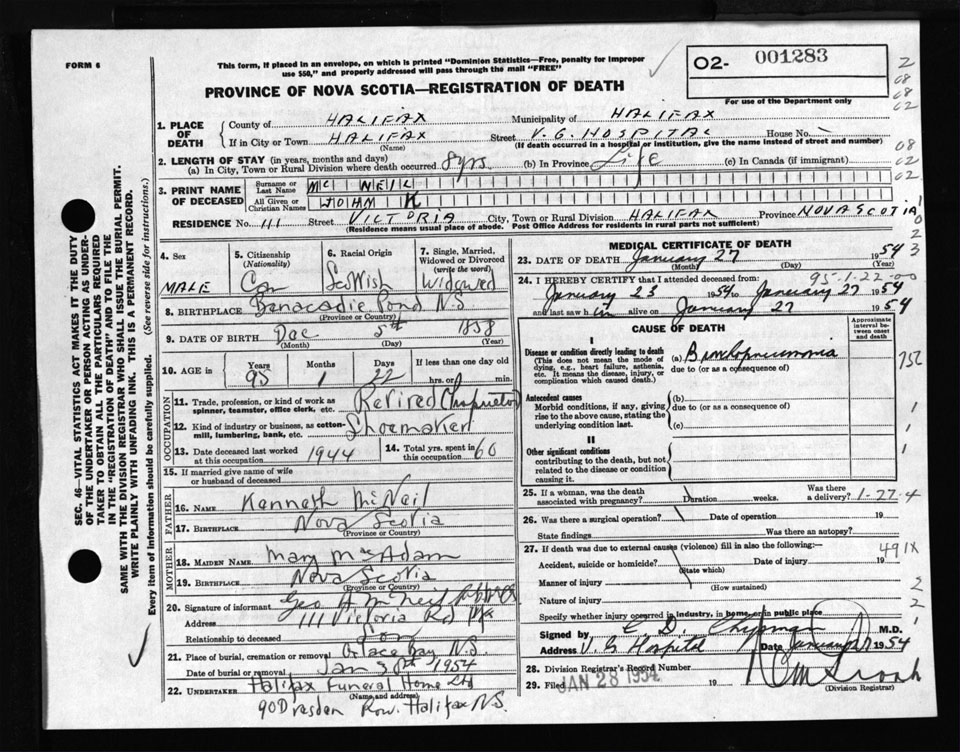 FORM 6
This form, if placed in an envelope, on which is printed "Dominion Statistics—Free, penalty for improper
use $50," and properly addressed will pass through the mail "FREE"
PROVINCE OF NOVA SCOTIA—REGISTRATION OF DEATH
O2- 001283
For use of the Department only
1. PLACE OF DEATH
County of HALIFAX Municipality of HALIFAX
If in City or Town HALIFAX Street V.G. HOSPITAL House No. \
(Name) (If death occurred in a hospital or institution, give the name instead of street and number)
2. LENGTH OF STAY (in years, months and days)
(a) In City, Town or Rural Division where death occurred 8yrs. (b) In Province Life (c) In Canada (if immigrant)
3. PRINT NAME OF DECEASED
Surname or Last Name MC NEIL
All Given or Christian Names JOHN K
RESIDENCE No. 111 Street VICTORIA City, Town or Rural Division HALIFAX Province NOVA SCOTIA
(Residence means usual place of abode. Post Office Address for residents in rural parts not sufficient)
4. Sex MALE
5. Citizenship (Nationality) Can
6. Racial Origin Scottish
7. Single, Married, Widowed or Divorced (write the word) Widowed
8. BIRTHPLACE Benacadie Pond N.S.
(Province or Country)
9. DATE OF BIRTH Dec 5th 1858
(Month) (Day) (Year)
10. AGE in Years 95 Months 1 Days 22 If less than one day old hrs. or min.
OCCUPATION
11. Trade, profession, or kind of work as spinner, teamster, office clerk, etc. Retired (Proprietor)
12. Kind of industry or business, as cotton-mill, lumbering, bank, etc. Shoemaker
13. Date deceased last worked at this occupation 1944
14. Total yrs. spent in this occupation 60
15. If married give name of wife or husband of deceased
FATHER
16. Name Kenneth McNeil
17. Birthplace Nova Scotia
MOTHER
18. MAIDEN NAME Mary MacAdam
19. BIRTHPLACE Nova Scotia
(Province or Country)
20. Signature of informant Geo A McNeil
Address 111 Victoria Rd Hfx
Relationship to deceased Son
21. Place of burial, cremation or removal Glace Bay N.S.
Date of burial or removal Jan 30th 1954
22. UNDERTAKER Halifax Funeral Home Ltd
(Name and address)
90 Dresden Row. Halifax N.S.
MEDICAL CERTIFICATE OF DEATH
23. DATE OF DEATH January 27 1954
(Month) (Day) (Year)
95-1-22-00
24. I HEREBY CERTIFY that I attended deceased from:
January 23 1954 to January 27 1954
and last saw him alive on January 27 1954
CAUSE OF DEATH
Approximate interval between onset and death
I
Disease or condition directly leading to death
(This does not mean the mode of dying, e.g., heart failure, asthenia, etc. It means the disease, injury, or complication which caused death.)
(a) Bronchopneumonia
due to (or as a consequence of)
Antecedent causes
Morbid conditions, if any, giving rise to the above cause, stating the underlying condition last.
(b)
due to (or as a consequence of)
(c)
II
Other significant conditions
contributing to the death, but not related to the disease or condition causing it.
25. If a woman, was the death associated with pregnancy? Duration weeks. Was there a delivery? 1-27-4
26. Was there a surgical operation? Date of operation 19
State findings Was there an autopsy?
27. If death was due to external causes (violence) fill in also the following:— 491X
Accident, suicide or homicide? Date of injury 19
(State which)
Manner of injury
(How sustained)
Nature of injury
Specify whether injury occurred in industry, in home, or in public place
Signed by C D. Chapman M.D.
Address V. G Hospital Date January 1954
28. Division Registrar's Record Number
29. Filed JAN 28 1954 19
(Division Registrar)
SEC. 46—VITAL STATISTICS ACT MAKES IT THE DUTY
OF THE UNDERTAKER OR PERSON ACTING AS UNDER-
TAKER TO OBTAIN ALL THE PARTICULARS REQUIRED
IN THE "REGISTRATION OF DEATH" AND TO FILE THE
SAME WITH THE DIVISION REGISTRAR WHO SHALL ISSUE THE BURIAL PERMIT.
WRITE PLAINLY WITH UNFADING INK. THIS IS A PERMANENT RECORD.
Every item of information should be carefully supplied. (See reverse side for instructions.)